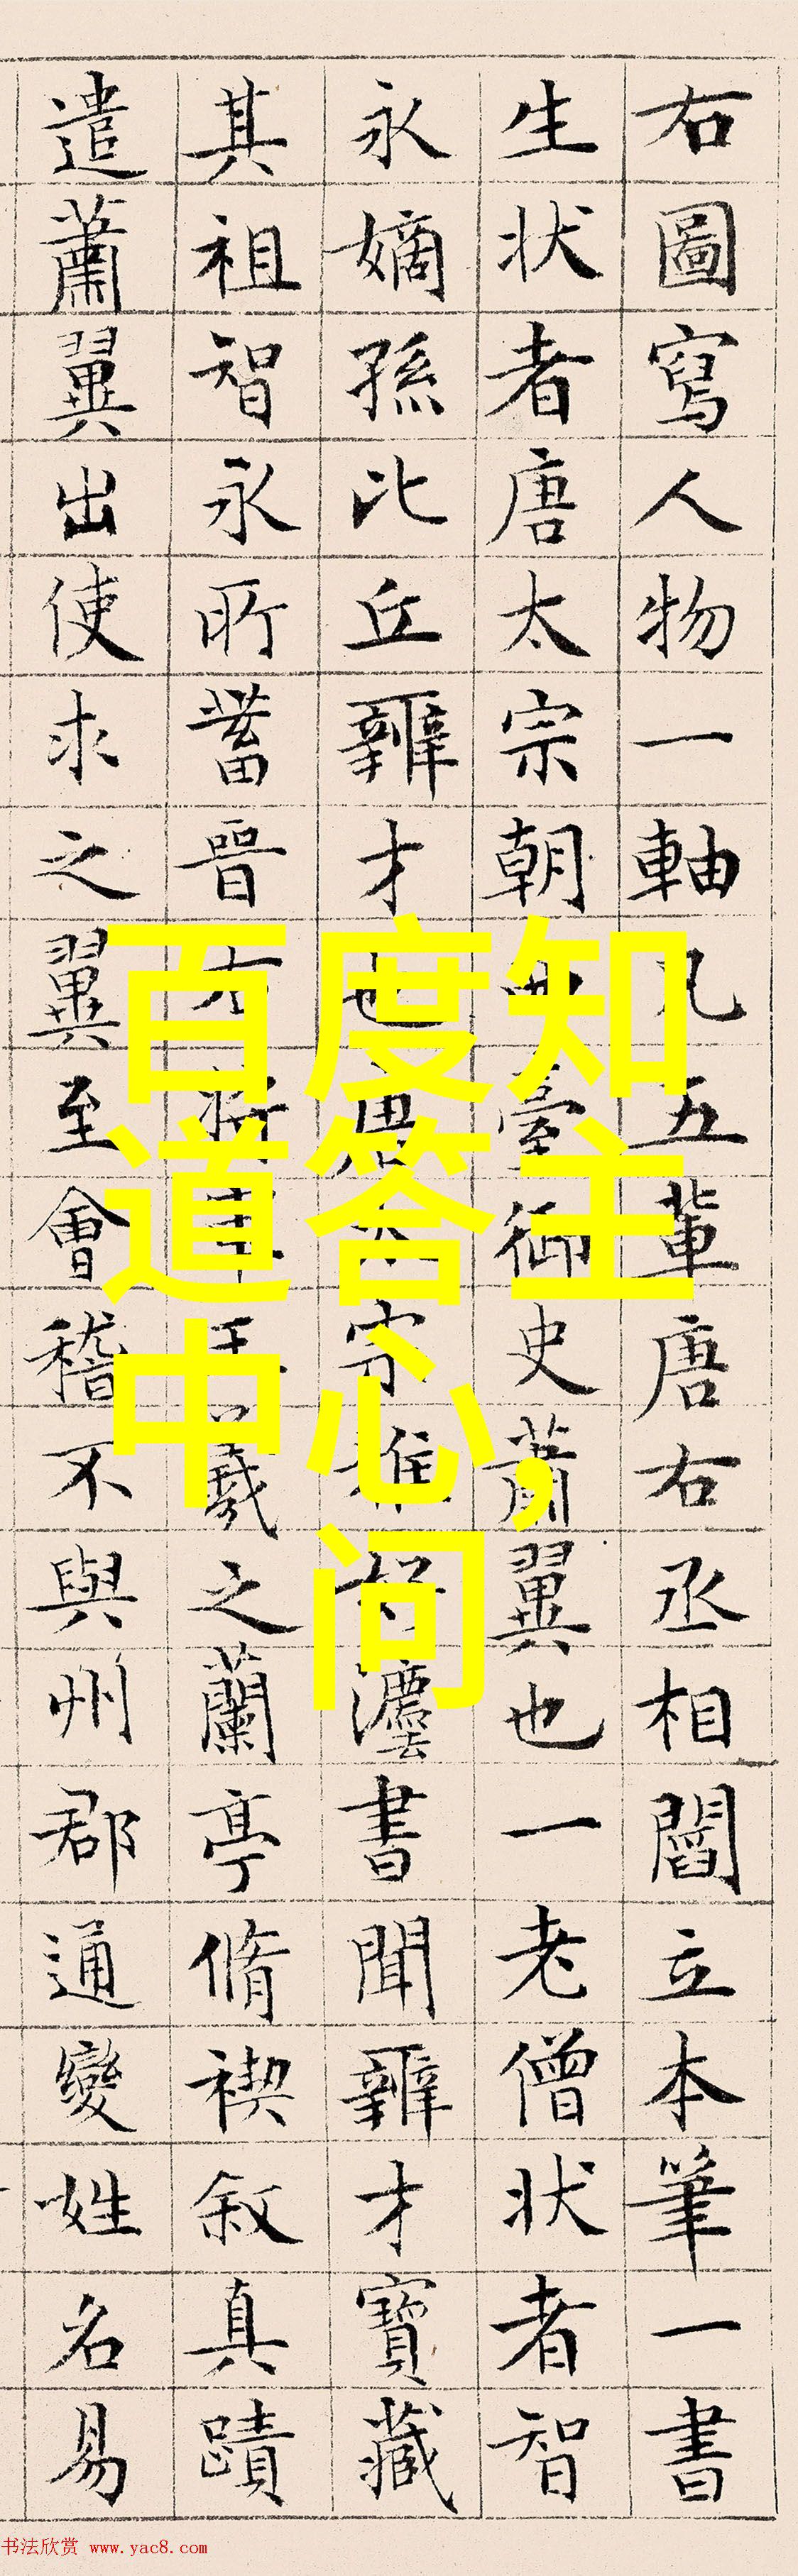 右圖寫人物一軸凡五輩唐右丞相閻立本筆一書
生状者唐太宗朝西臺御史蕭翼也一老僧状者智
永嫡孫比丘辯才也唐太宗雅好灋書聞辯才寶藏
其祖智永所蓄晉右将軍王羲之蘭亭脩禊叙真蹟
遣蕭翼出使求之翼至會稽不與州郡通變姓名易
百度知
道答主
中心,
问
书法欣赏 www.yac8.com